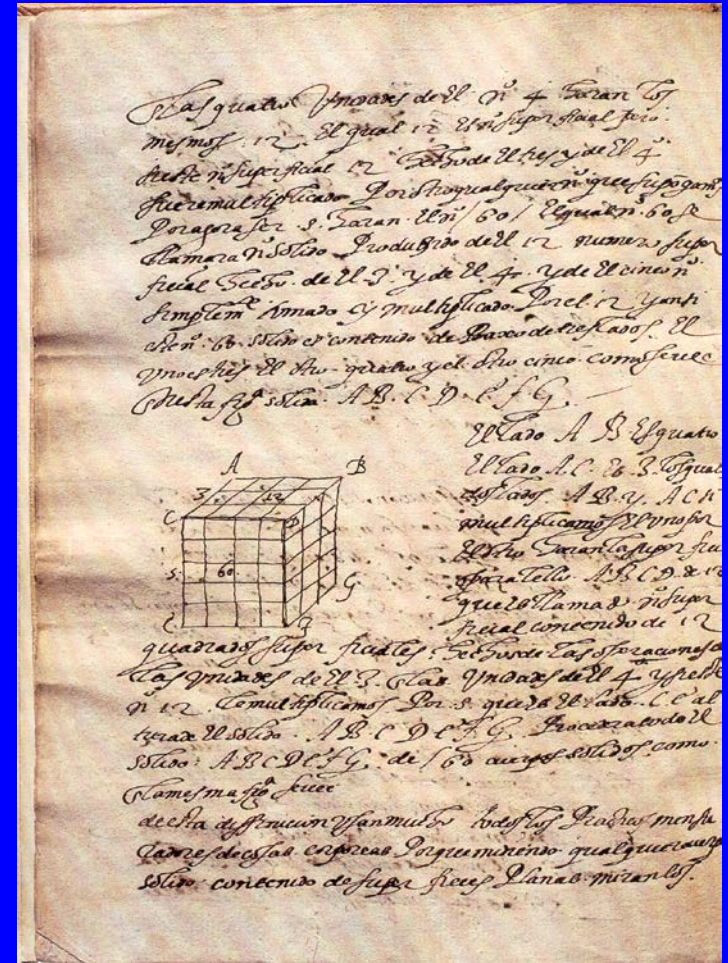 las quatro Vnidades de El nº 4 haran los
mesmos 12. El qual 12 Es nº superficial pero
si este nº superficial 12 hecho de El tres y de El 4
fuere multiplicado Por otro qualquier nº que supogamos
Por agora ser 5. haran El nº /60/ El qual nº 60 se
llamara nº solido Produzido de El 12 numero super
ficial hecho de El 3. y de El 4. y de El cinco nº
simplem^te tomado y multiplicado Por el 12 y ansi
este nº 60 solido es contenido debaxo de tres lados El
Vno es tres El otro quatro y el otro cinco como se vee
En esta figª solida. A B. C D. E F G.
El Lado A B Es quatro
El Lado A C. Es 3. los qual
dos lados A B y A C si
multiplicamos El vno por
El otro haran la super ficie
paralello A B C D. de 12
que es llamado nº super
ficial contenido de 12
A B
3 12
C D
5 60
G
E F
quadrados super ficiales, hechos de las operaciones de
las Vnidades de El 3. las Vnidades de El 4 y si este
nº 12 lo multiplicamos Por 5 que es El lado C E al
El solido A B C D E F G. todo El
solido A B C D E F G. de /60 cuerpos solidos como
la mesma figª se vee
de esta diffinicion Vsan mucho todos los Praticos mensu
radores de cosas corporeas Porque midiendo qualquier cuerpo
solido contenido de super ficies Planas miran los.